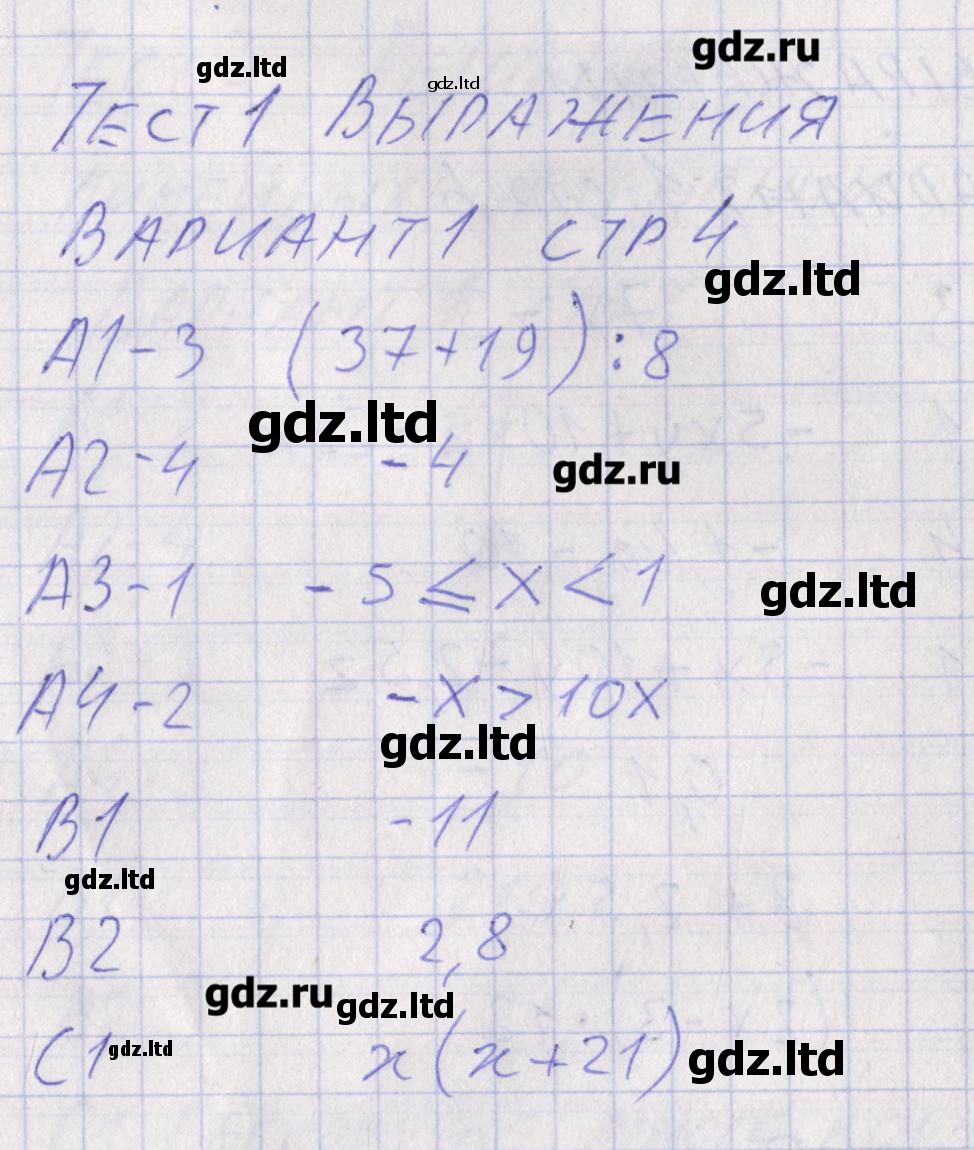 gdz.ru
gdz.ltd gdz.ltd
ТЕСТ 1 ВЫРАЖЕНИЯ
ВАРИАНТ 1 СТР 4
gdz.ltd
А1-3 (37+19):8
gdz.ltd
А2-4 -4 gdz.ru
А3-1 -5≤X<1 gdz.ltd
А4-2 -X>10X
gdz.ltd
В1 -11
gdz.ltd
В2 2,8
gdz.ru gdz.ltd
С1 gdz.ltd x(x+21) gdz.ltd